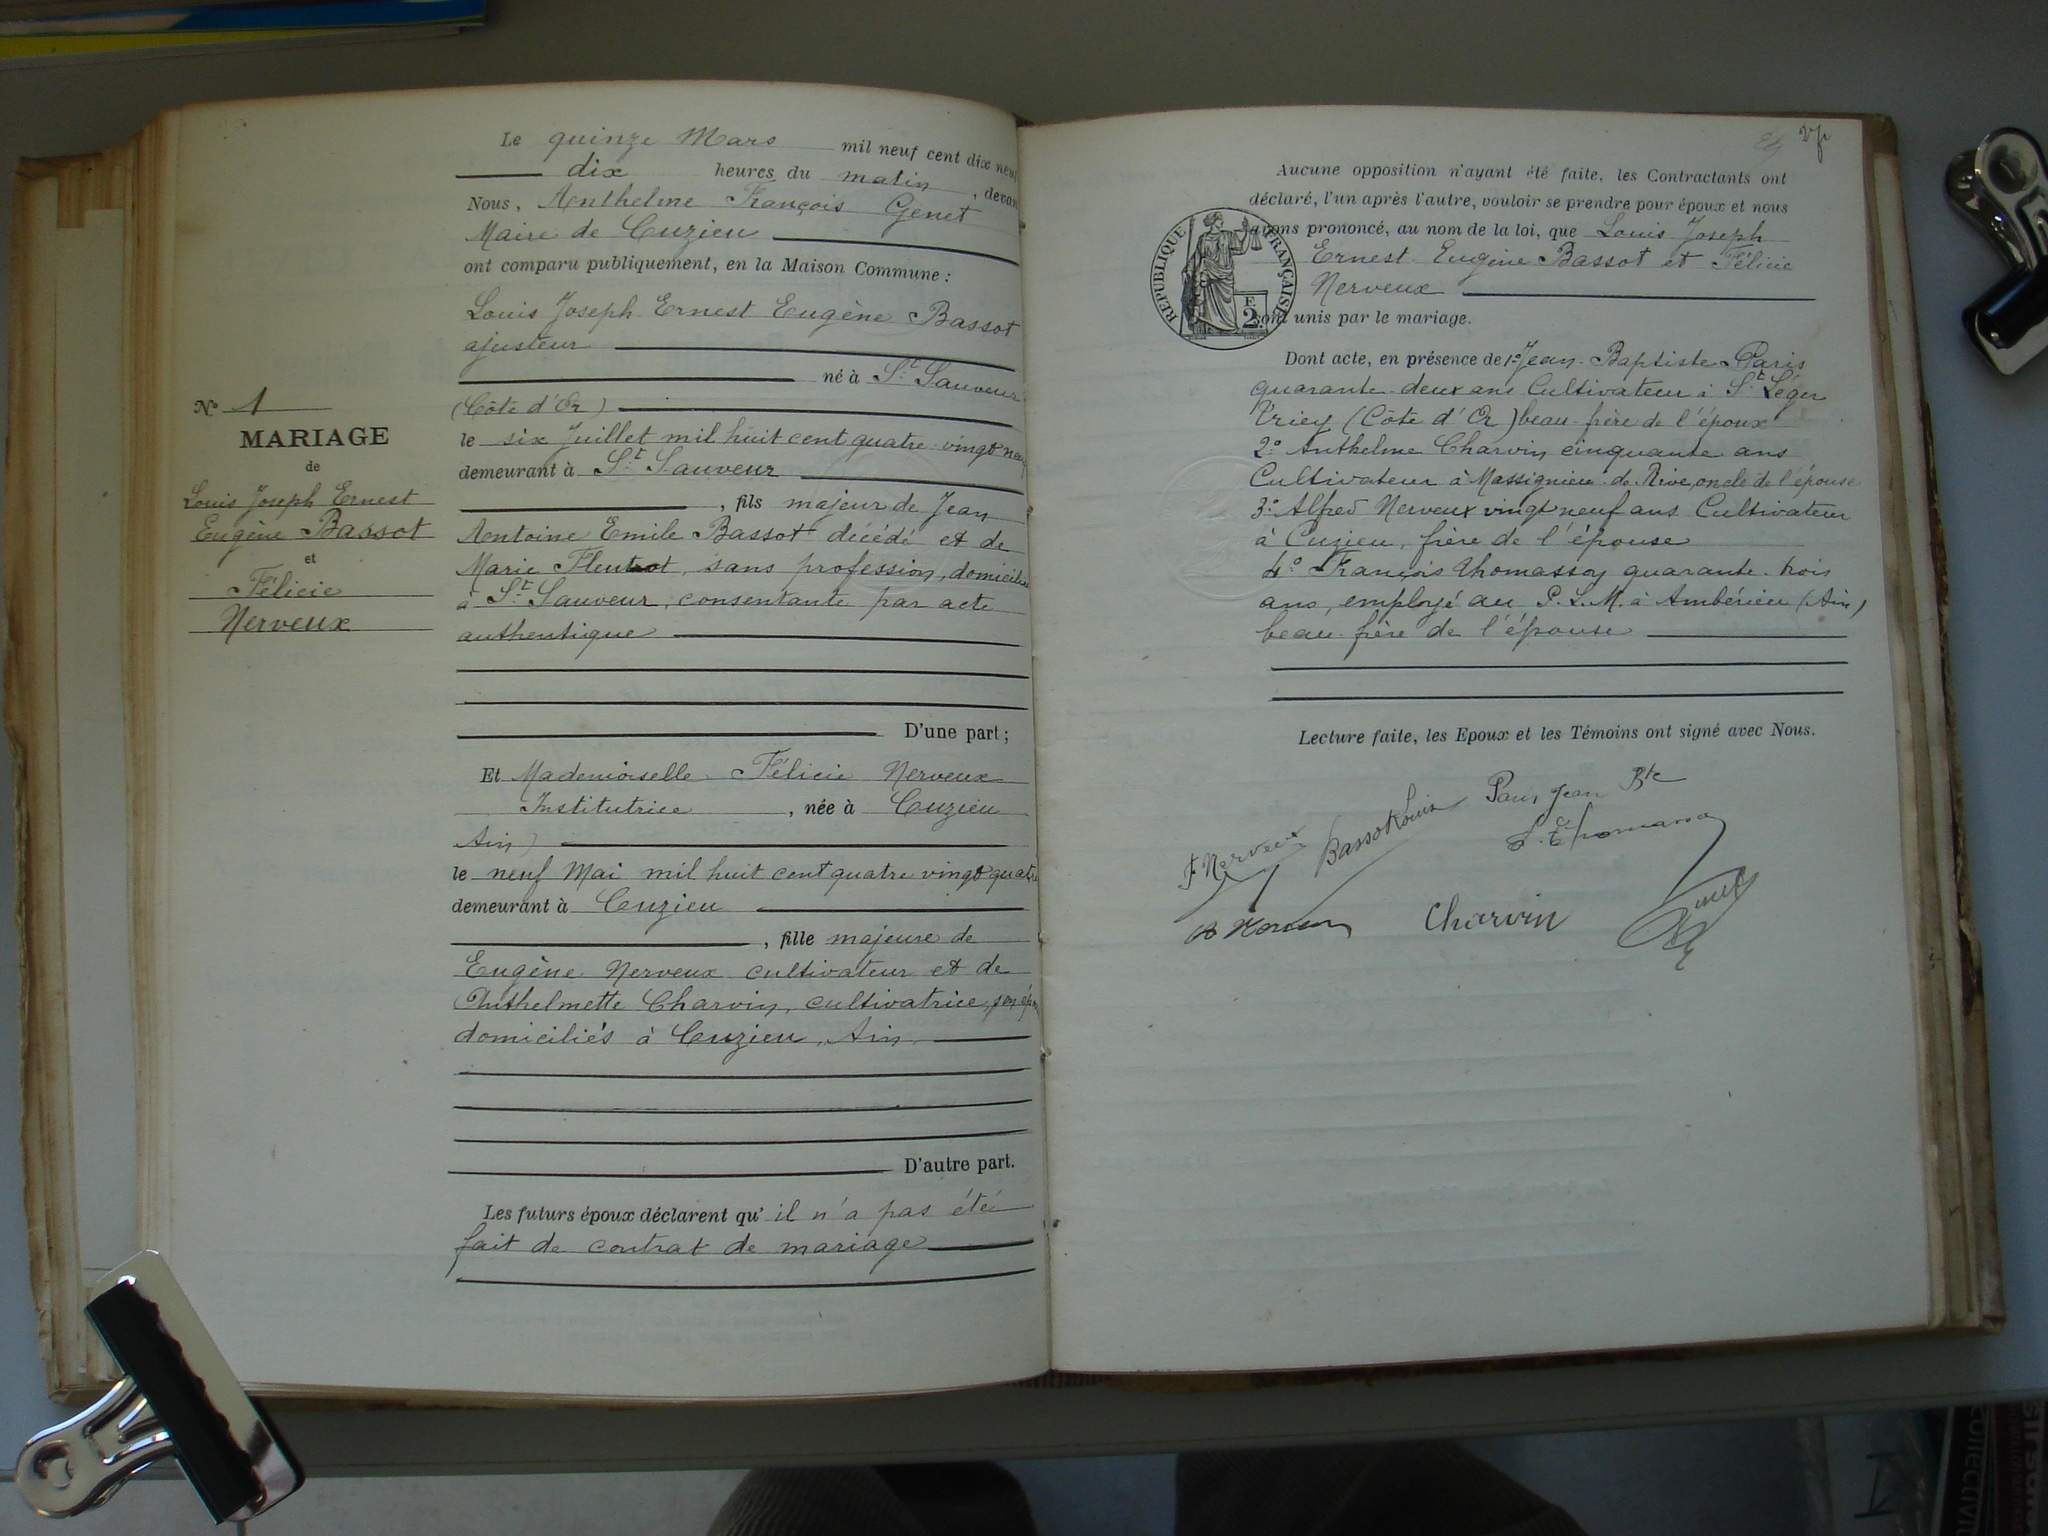 Le quinze Mars mil neuf cent dix neuf
dix heures du matin, devant
Nous, Anthelme François Genet
Maire de Cuzieu
ont comparu publiquement, en la Maison Commune :
Louis Joseph Ernest Eugène Bassot
ajusteur
né à St Sauveur
(Côte d'Or)
le six Juillet mil huit cent quatre-vingt neuf
demeurant à St Sauveur
, fils majeur de Jean
Antoine Emile Bassot décédé et de
Marie Fleutot, sans profession, domiciliée
à St Sauveur, consentante par acte
authentique
D'une part ;
Et Mademoiselle Félicie Nerveux
Institutrice, née à Cuzieu
Ain)
le neuf Mai mil huit cent quatre vingt quatre
demeurant à Cuzieu
, fille majeure de
Eugène Nerveux cultivateur et de
Anthelmette Charvin, cultivatrice, son
domiciliés à Cuzieu, Ain
D'autre part.
Les futurs époux déclarent qu'il n'a pas été
fait de contrat de mariage
No 1
MARIAGE
de
Louis Joseph Ernest
Eugène Bassot
et
Félicie
Nerveux
Aucune opposition n'ayant été faite, les Contractants ont
déclaré, l'un après l'autre, vouloir se prendre pour époux et nous
avons prononcé, au nom de la loi, que Louis Joseph
Ernest Eugène Bassot et Félicie
Nerveux
sont unis par le mariage.
RÉPUBLIQUE FRANÇAISE
F
2
Dont acte, en présence de 1º Jean-Baptiste Paris
quarante-deux ans Cultivateur à St Léger
Triey (Côte d'Or) beau-frère de l'époux
2º Anthelme Charvin cinquante ans
Cultivateur à Massignieu-de-Rive, oncle de l'épouse
3º Alfred Nerveux vingt neuf ans Cultivateur
à Cuzieu, frère de l'épouse
4º François Thomasson quarante-trois
ans, employé au P.L.M. à Ambérieu (Ain)
beau-frère de l'épouse
Lecture faite, les Epoux et les Témoins ont signé avec Nous.
F Nerveux Bassot Louis Paris Jean Bte
Charvin